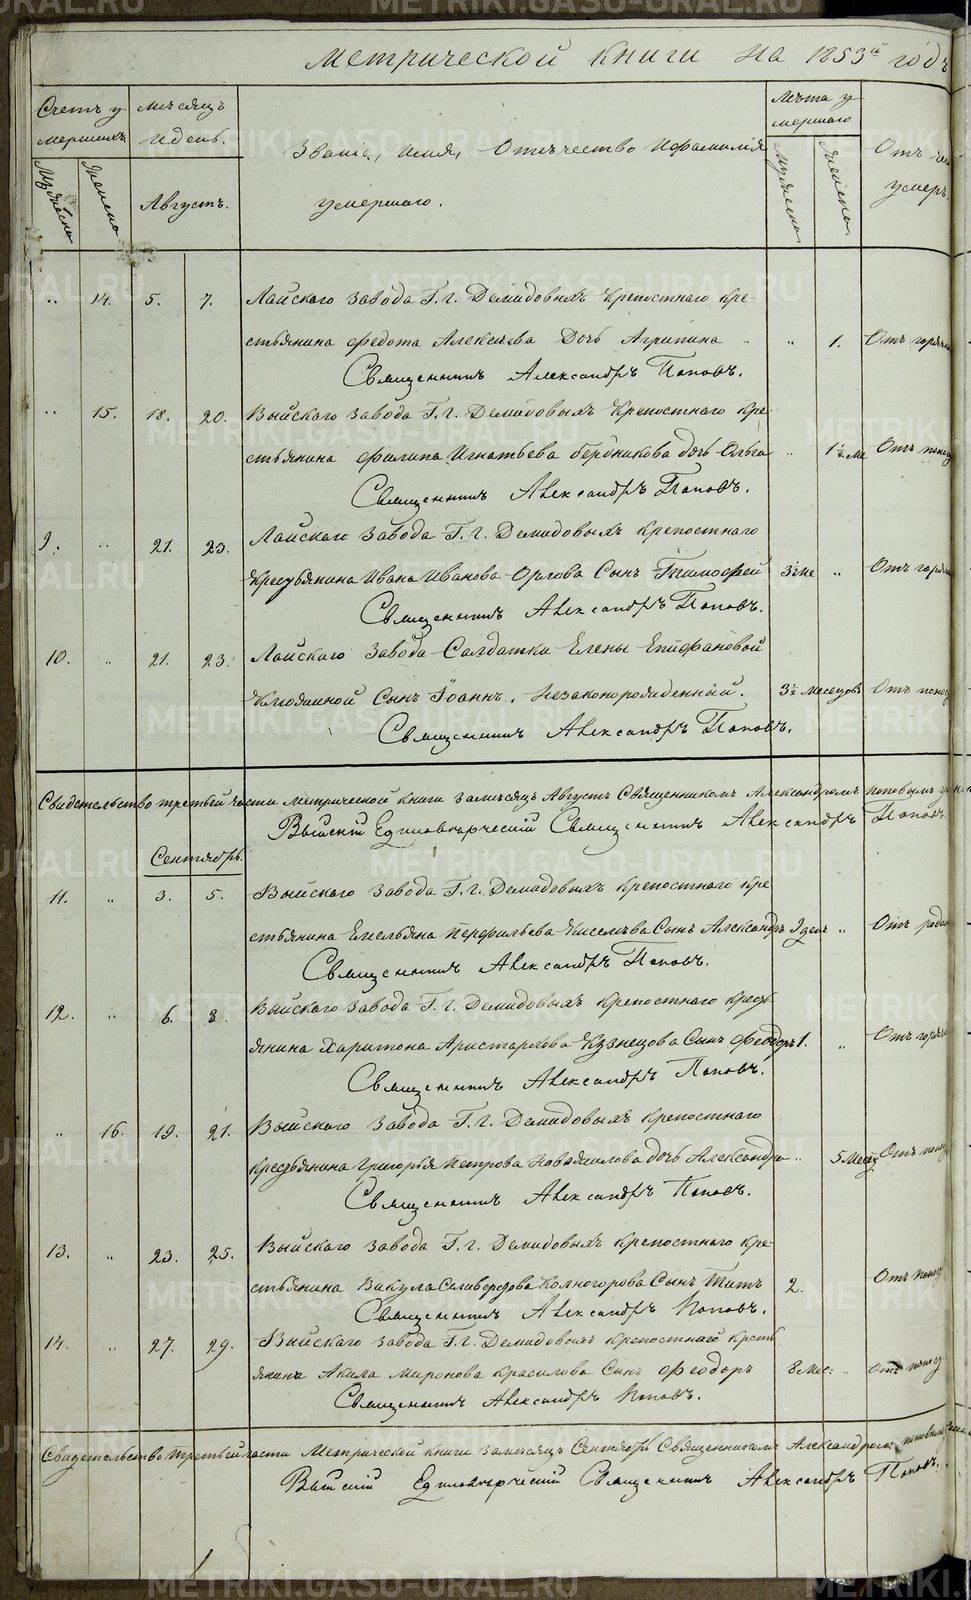 Метрической книги на 1853й годъ
Счетъ у
мершихъ.
Мужеска
Женска
месяцъ
и день.
Августъ.
Званiе, имя, Отчество и фамилiя
умершаго.
Лета у
мершаго
Мужеска
Женска
Отъ
умеръ
" 14. 5. 7. Лайскаго завода Г. г. Демидовыхъ крепостнаго кре-
стьянина Федота Алексеева Дочь Агрипина " " 1. Отъ горячк
Священникъ Александръ Поповъ.
" 15. 18. 20. Выйскаго завода Г. г. Демидовыхъ крепостнаго кре-
стьянина Филипа Игнатьева Бердникова дочь Ольга " 1½ ме Отъ понос
Священникъ Александръ Поповъ.
9. " 21. 23. Лайскаго завода Г. г. Демидовыхъ крепостнаго
крестьянина Ивана Иванова Орлова Сынъ Тимофей 3½ ме " Отъ горяч
Священникъ Александръ Поповъ.
10. " 21. 23. Лайскаго завода Солдатки Елены Епифановой
Сынъ Iоаннъ, Незаконорожденный. 3½ месецовъ Отъ понос
Священникъ Александръ Поповъ.
Свидетельство третьей части метрической книги за месяцъ Августъ Священникомъ Александромъ Поповымъ
Выйскiй Единоверческiй Священникъ Александръ Поповъ.
Сентябрь.
11. " 3. 5. Выйскаго завода Г. г. Демидовыхъ крепостнаго кре
стьянина Емельяна Перфильева Киселева Сынъ Александръ 9 ден " Отъ родим
Священникъ Александръ Поповъ.
12. " 6. 8. Выйскаго завода Г. г. Демидовыхъ крепостнаго крест
янина Харитона Аристархова Кузнецова Сынъ Феодоръ 1. " Отъ горяч
Священникъ Александръ Поповъ.
" 16. 19. 21. Выйскаго завода Г. г. Демидовыхъ крепостнаго
крестьянина Григорья Петрова дочь Александра " 5 Месец Отъ понос
Священникъ Александръ Поповъ.
13. " 23. 25. Выйскаго завода Г. г. Демидовыхъ крепостнаго кре-
стьянина Вакула Селиверстова Колногорова Сынъ Титъ 2. Отъ понос
Священникъ Александръ Поповъ.
14. " 27. 29. Выйскаго завода Г. г. Демидовыхъ крепостнаго кресть
янина Акила Миронова Красилова Сынъ Феодоръ 8 Мес: " Отъ понос
Священникъ Александръ Поповъ.
Свидетельство третьей части Метрической книги за месяцъ Сентябрь Священникомъ Александромъ Поповымъ
Выйскiй Единоверческiй Священникъ Александръ Поповъ.
METRIKI.GASO-URAL.RU